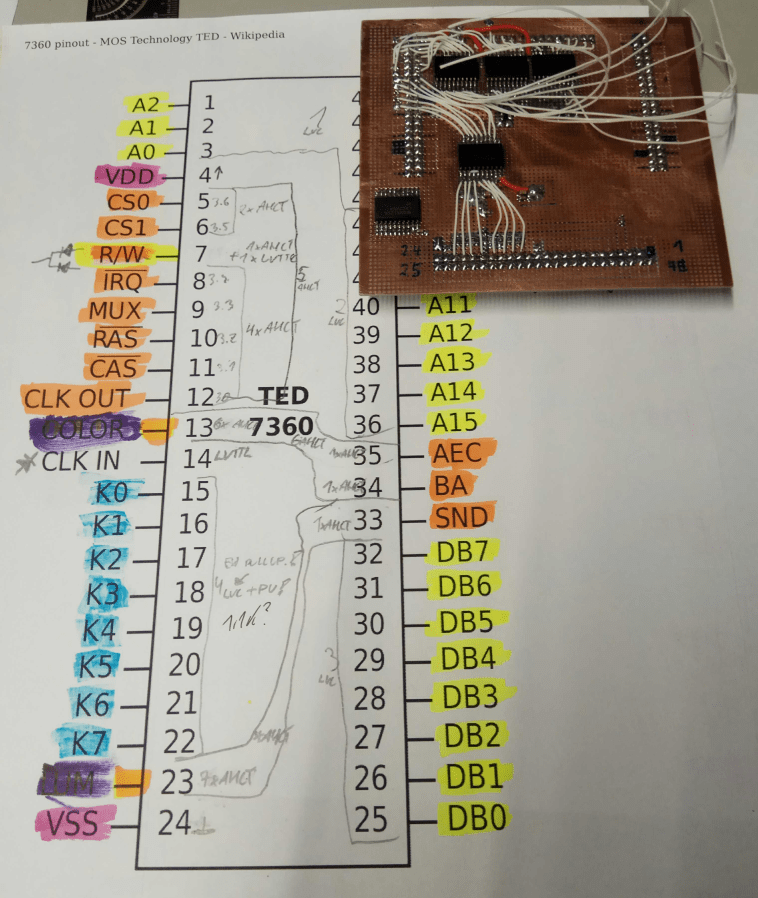 7360 pinout - MOS Technology TED - Wikipedia
A2 1
A1 2
A0 3
VDD 4↑
CS0 5 3.6 2xAHCT
CS1 6 3.5
R/W 7 1xAHCT
+1xLVTTL
IRQ 8
MUX 9 3.3
RAS 10 3.2 4xAHCT
CAS 11
CLK OUT 12 TED
COLOR 13 7360
CLK IN 14 LVTTL
K0 15
K1 16
K2 17
K3 18
K4 19 1,1k?
K5 20
K6 21
K7 22
23 7xAHCT
VSS 24
1
LVC
5
AHCT
2
LVC
40 A11
39 A12
38 A13
37 A14
36 A15
35 AEC
34 BA
1xAHCT 33 SND
32 DB7
31 DB6
30 DB5
29 DB4
28 DB3
27 DB2
26 DB1
25 DB0
3
LVC
24 1
25 48